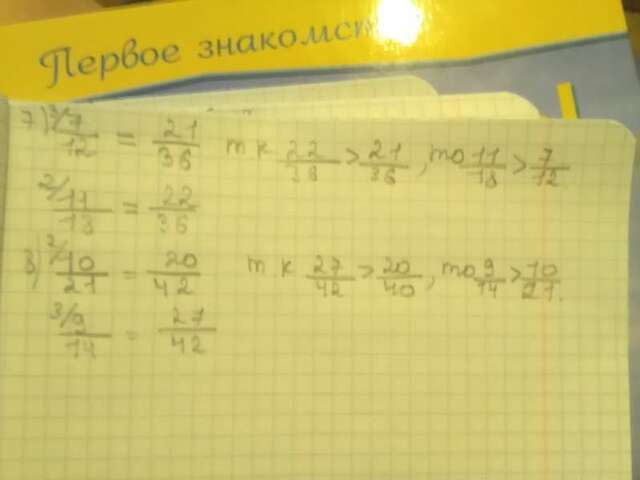 Первое знакомст
7) 3/ 7/12 = 21/36 т к 22/36 > 21/36, то 11/18 > 7/12
2/ 11/18 = 22/36
8) 2/ 10/21 = 20/42 т к 27/42 > 20/40, то 9/14 > 10/21.
3/ 9/14 = 27/42